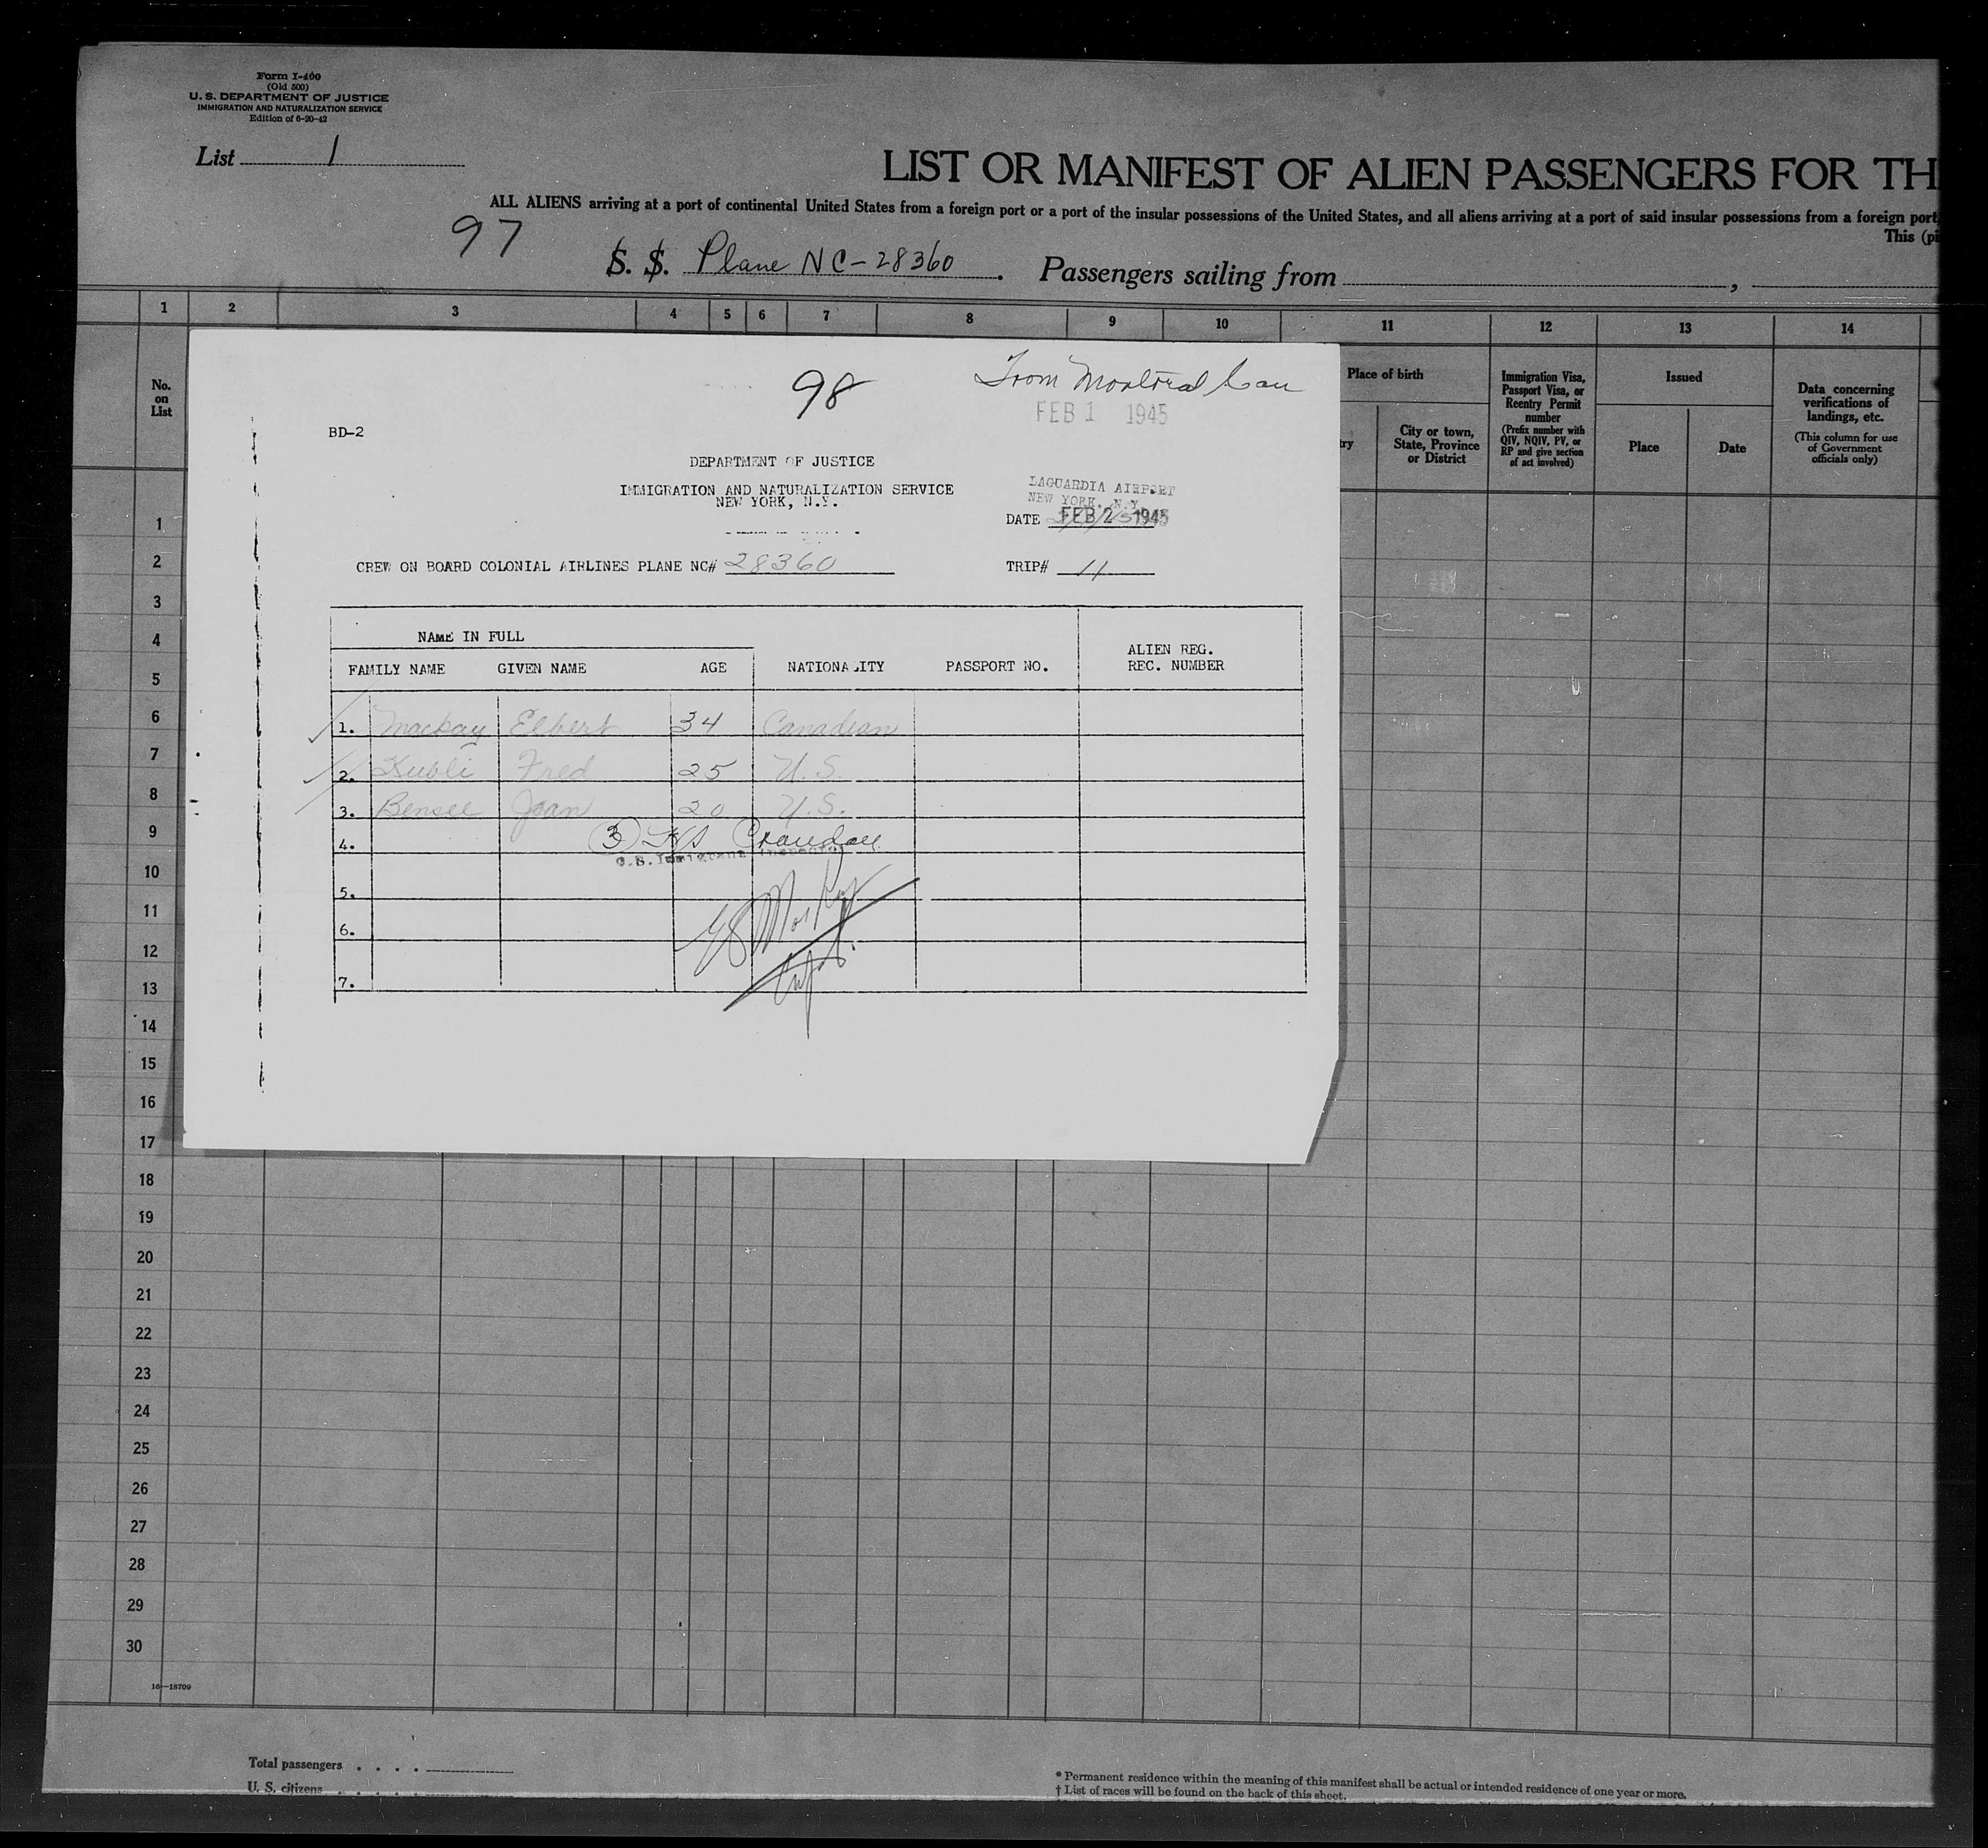 Form I-400
(Old 500)
U. S. DEPARTMENT OF JUSTICE
IMMIGRATION AND NATURALIZATION SERVICE
Edition of 6-20-42
List 1
LIST OR MANIFEST OF ALIEN PASSENGERS FOR TH
ALL ALIENS arriving at a port of continental United States from a foreign port or a port of the insular possessions of the United States, and all aliens arriving at a port of said insular possessions from a foreign port
This (pi
97
S. S. Plane NC-28360. Passengers sailing from ,
1 2 3 4 5 6 7 8 9 10 11 12 13 14
No. on List
Place of birth
ry
City or town, State, Province or District
Immigration Visa, Passport Visa, or Reentry Permit number
(Prefix number with QIV, NQIV, PV, or RP and give section of act involved)
Issued
Place
Date
Data concerning verifications of landings, etc.
(This column for use of Government officials only)
98
From Montreal Can
FEB 1 1945
BD-2
DEPARTMENT OF JUSTICE
IMMIGRATION AND NATURALIZATION SERVICE
NEW YORK, N.Y.
LAGUARDIA AIRPORT
NEW YORK, N.Y.
DATE FEB 2 1945
CREW ON BOARD COLONIAL AIRLINES PLANE NC# 28360
TRIP# 11
NAME IN FULL
FAMILY NAME GIVEN NAME AGE NATIONALITY PASSPORT NO. ALIEN REG. REC. NUMBER
1. Mackay Elbert 34 Canadian
2. Kubli Fred 25 U.S.
3. Bensel Joan 20 U.S.
4.
3 Crandall
U.S. Immigrant Inspector
5.
6.
7.
1
2
3
4
5
6
7
8
9
10
11
12
13
14
15
16
17
18
19
20
21
22
23
24
25
26
27
28
29
30
16—18709
Total passengers . . . .
U. S. citizens . . . .
* Permanent residence within the meaning of this manifest shall be actual or intended residence of one year or more.
† List of races will be found on the back of this sheet.